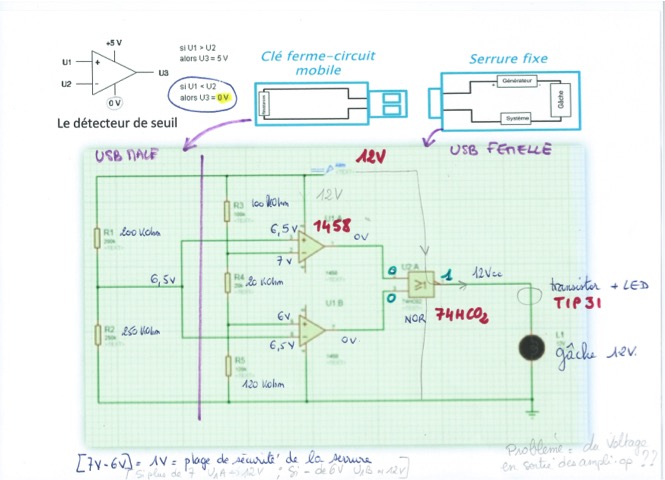 +5 V
U1
U2
U3
0 V
si U1 > U2
alors U3 = 5 V
si U1 < U2
alors U3 = 0 V
Le détecteur de seuil
Clé ferme-circuit
mobile
Résistance
Serrure fixe
Générateur
Gâche
Système
USB MALE
USB FEMELLE
12V
12V
R3
100 KOhm
R1
200 KOhm
6,5V
1458
0V
7V
6,5V
R4
20 KOhm
0
U2:A
1
12Vcc
≥1
0
NOR
74HC02
transistor + LED
TIP31
L1
gâche 12V.
R2
250 KOhm
6V
U1:B
6,5V
0V
1458
R5
120 KOhm
[7V-6V] = 1V = plage de sécurité de la serrure
Problème = de voltage
en sortie des ampli-op ??